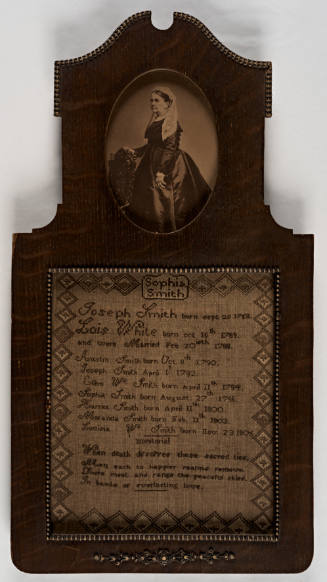 Sophia
Smith
Joseph Smith born Sept 20
Lois White born oct 16th 1764.
and were Married Feb 20th 1788.
Austin Smith born Oct 8th 1790.
Joseph Smith April 1st 1792.
Wm Smith born April 11th 1794.
Sophia Smith born August 27th 1796.
Harriet Smith born April 11th 1800.
Miranda Smith born Feb. 12th 1802.
Smith born Nov 23 1804
When death dissolves these sacred ties,
When each to happier realms remove.
There meet and range the peaceful skies.
In bands of everlasting love.